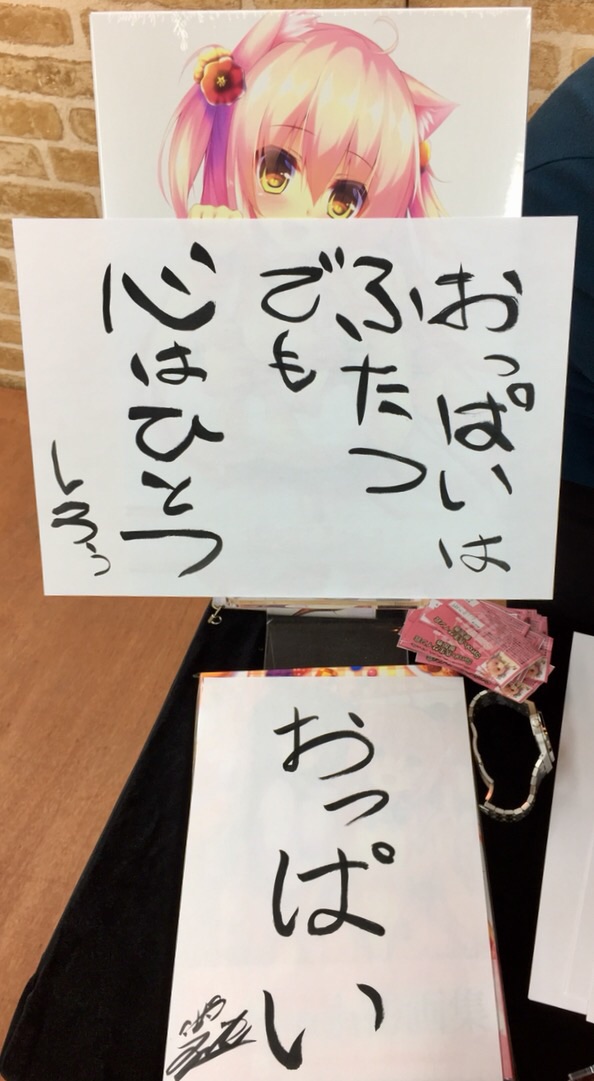 おっぱいは
ふたつ
でも
心はひとつ
しろぅ
おっぱい